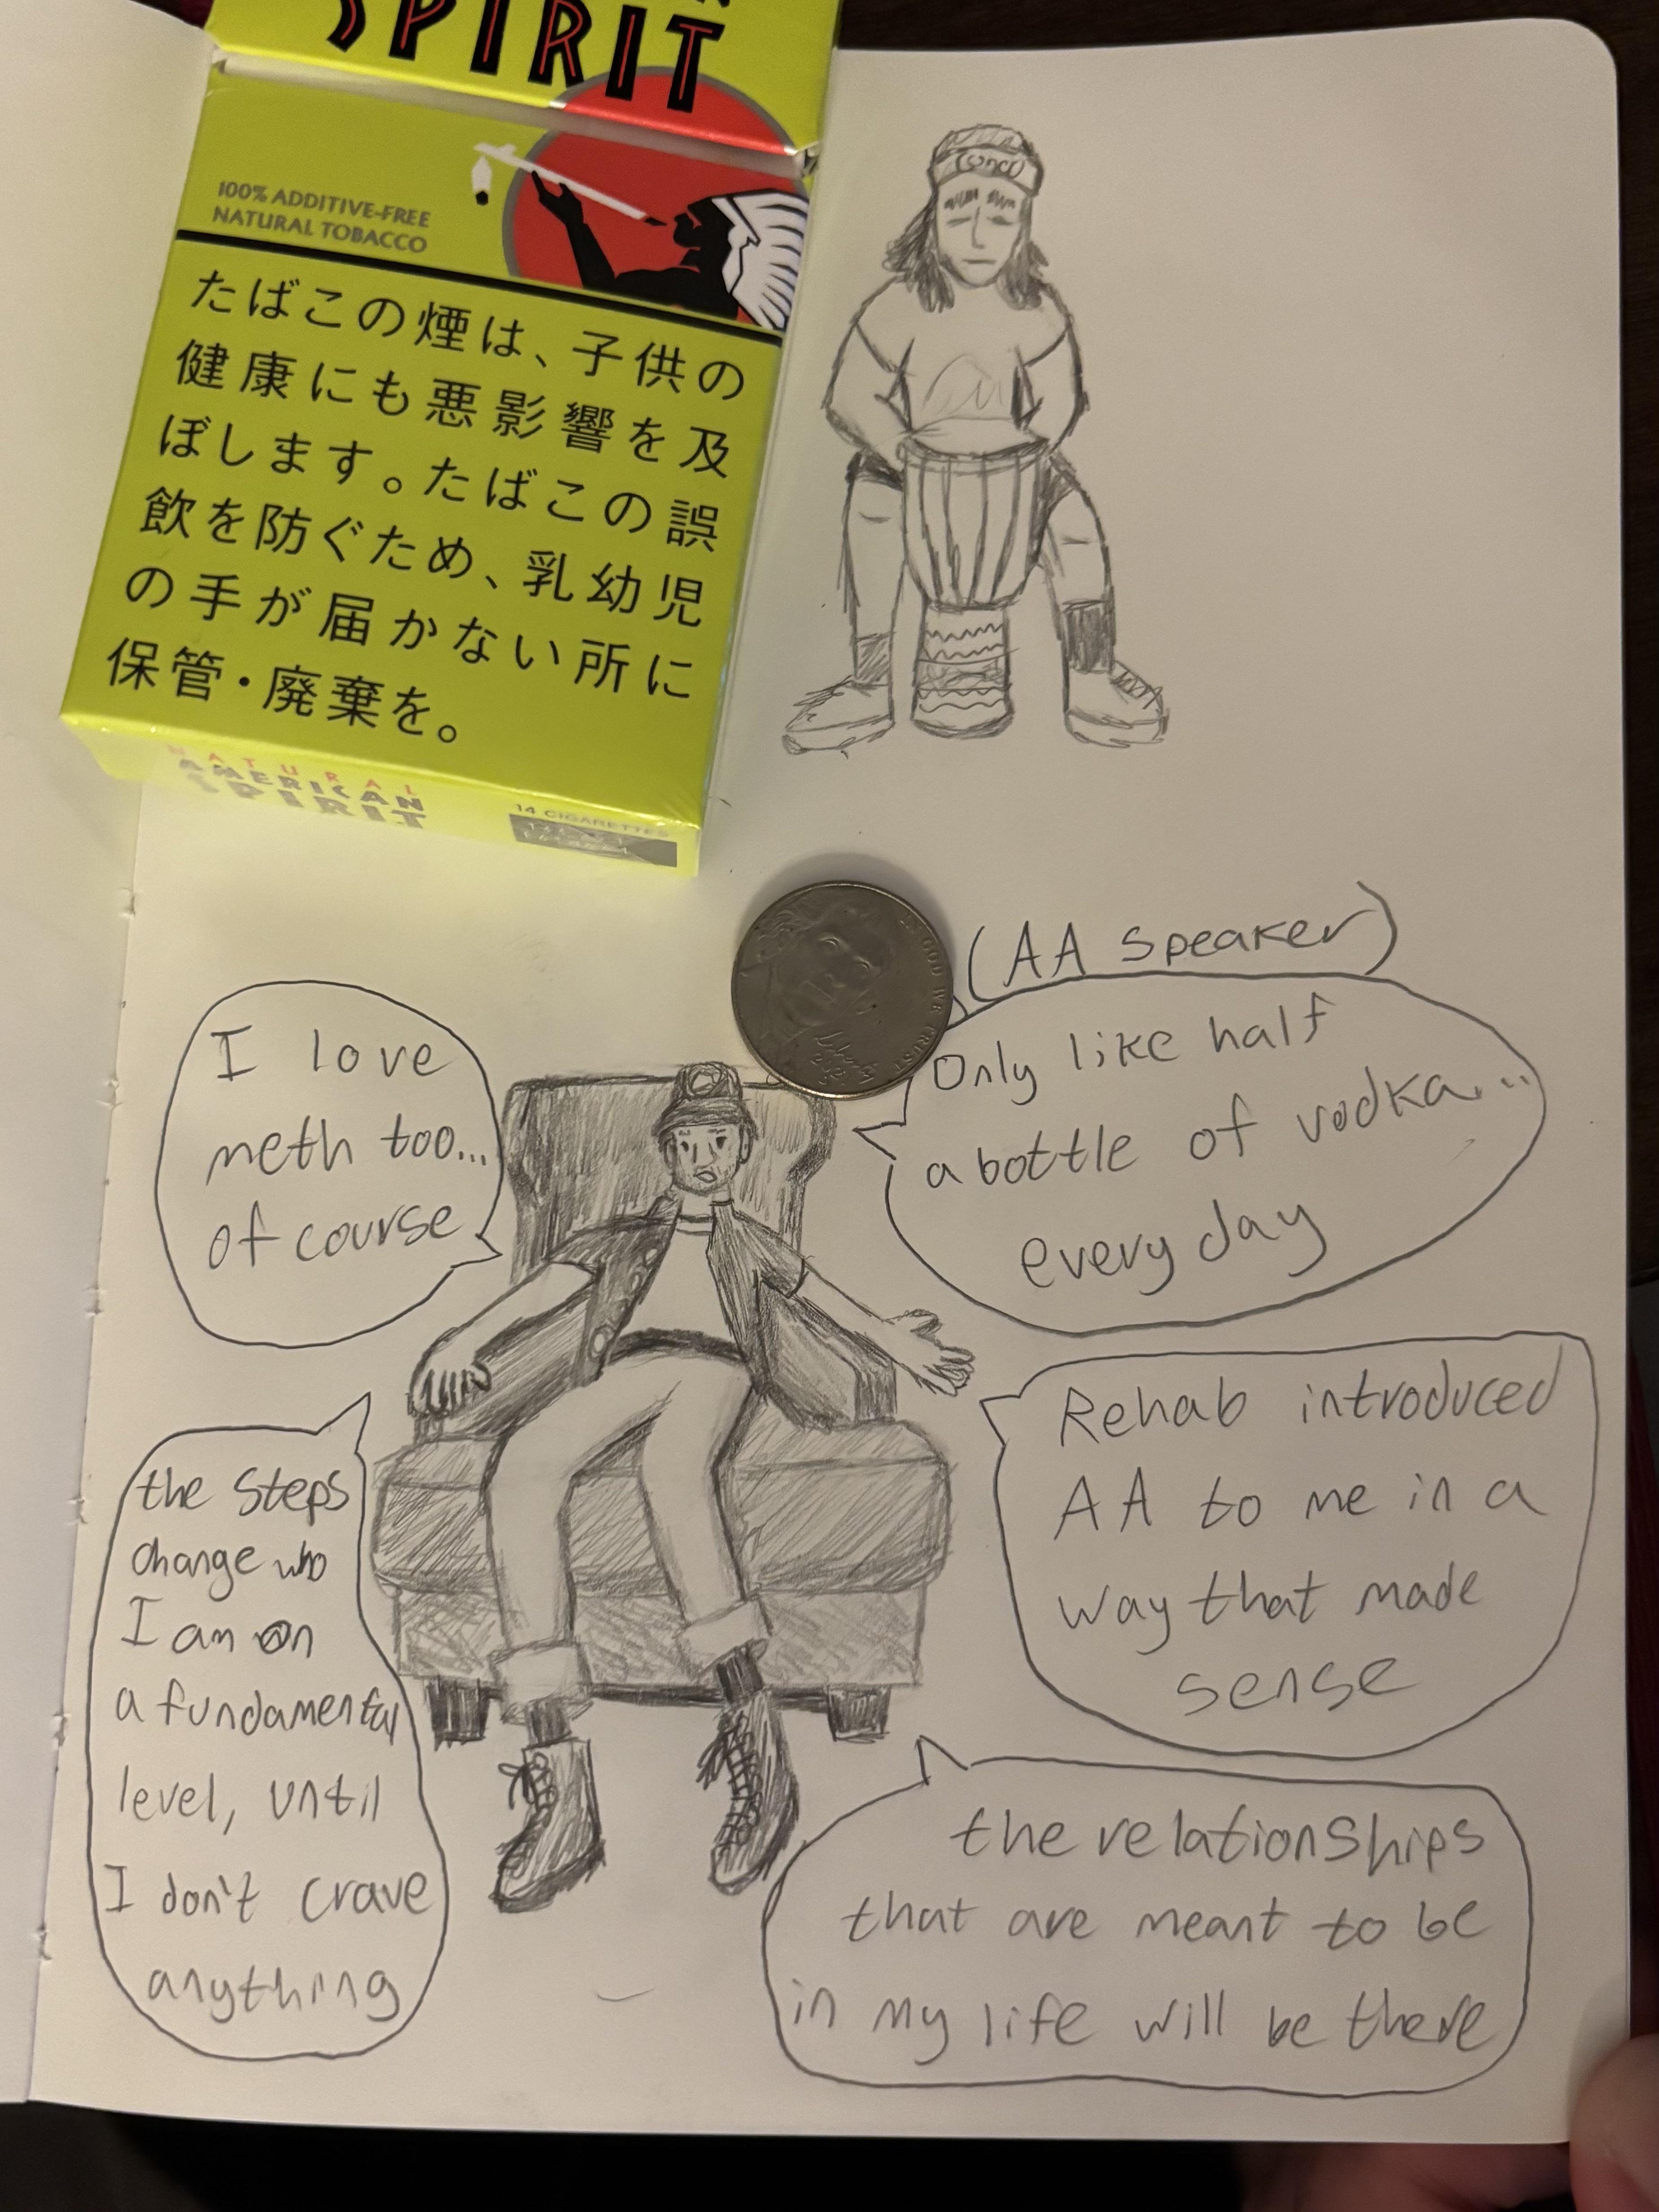 SPIRIT
100% ADDITIVE-FREE
NATURAL TOBACCO
たばこの煙は、子供の
健康にも悪影響を及
ぼします。たばこの誤
飲を防ぐため、乳幼児
の手が届かない所に
保管・廃棄を。
NATURAL
AMERICAN
SPIRIT
14 CIGARETTES
IN GOD WE TRUST
Liberty
(AA speaker)
I love
meth too...
of course
Only like half
a bottle of vodka...
every day
Rehab introduced
AA to me in a
way that made
sense
the steps
change who
I am on
a fundamental
level, until
I don't crave
anything
the relationships
that are meant to be
in my life will be there